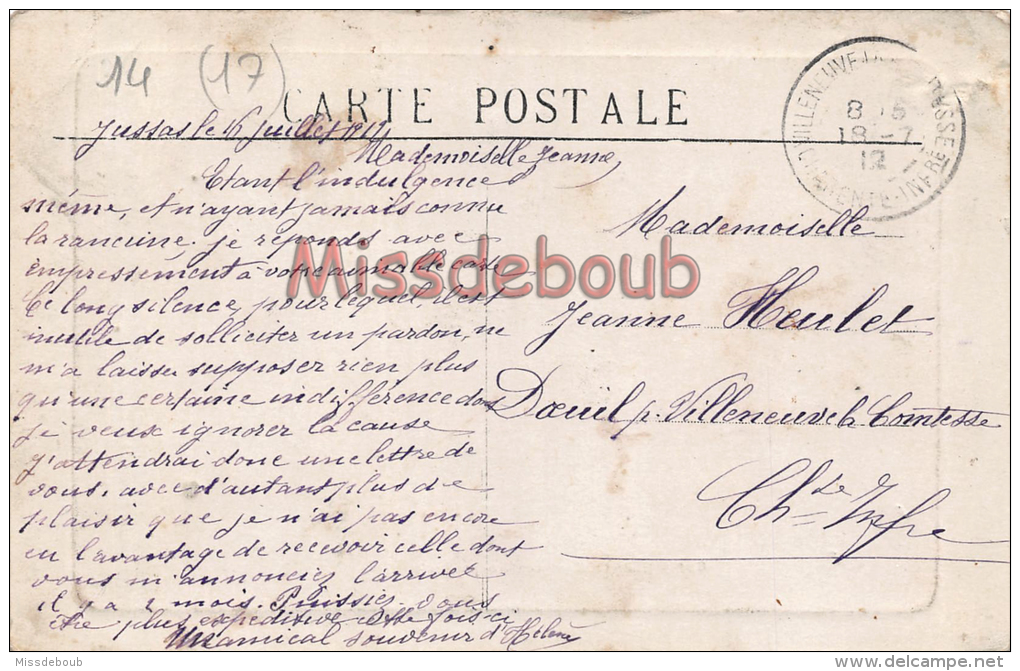 14 (17)
CARTE POSTALE
VILLENEUVE-LA-COMTESSE
18 -7
12
CHARENTE-INFRE
Jussas le 16 Juillet 1912
Mademoiselle Jeanne,
Etant l'indulgence
même, et n'ayant jamais connu
la rancune. je réponds avec
empressement à votre aimable carte
Ce long silence, pour lequel il est
inutile de solliciter un pardon, ne
m'a laissé supposer rien plus
qu'une certaine indifférence dont
je veux ignorer la cause
J'attendrai donc une lettre de
vous. avec d'autant plus de
plaisir que je n'ai pas encore
eu l'avantage de recevoir celle dont
vous m'annonciez l'arrivée
il y a 2 mois. Puissiez-vous
être plus expéditive cette fois-ci
Un amical souvenir d'Hélène
Mademoiselle
Jeanne Heulet
Dœuil p. Villeneuve la Comtesse
Ch-te Infre
Missdeboub
Missdeboub
delcampe.net